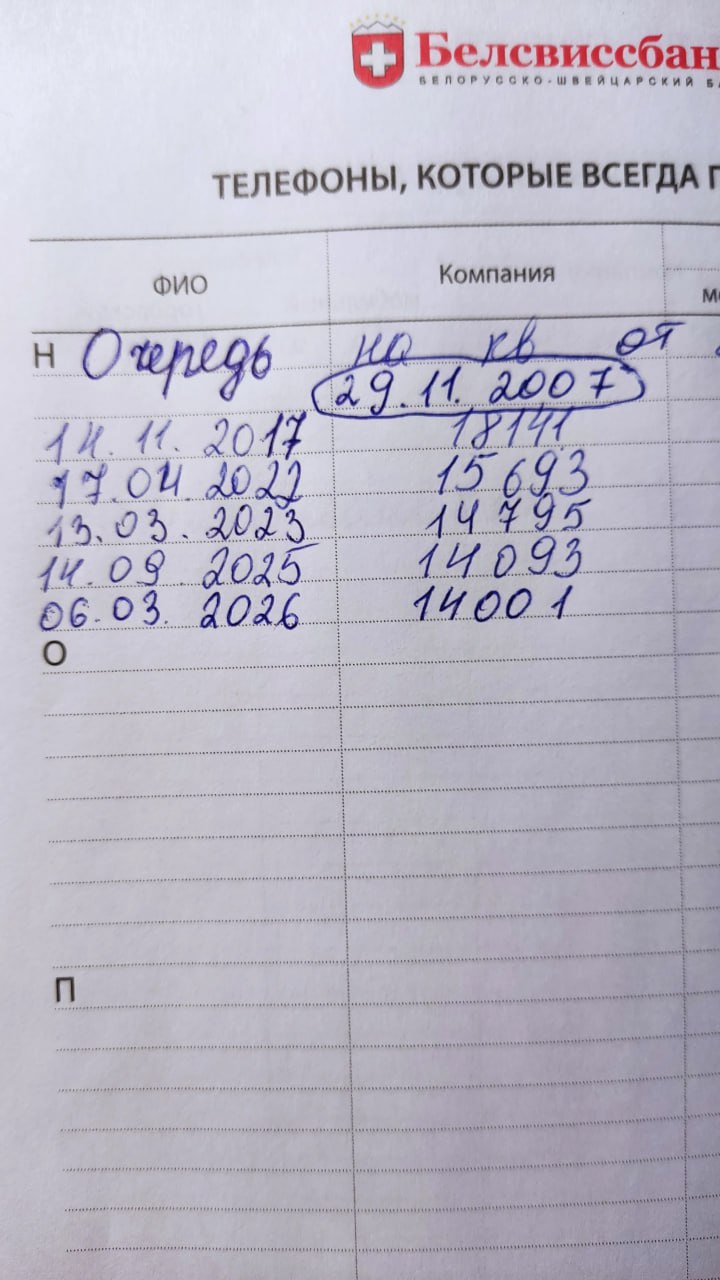 Белсвиссбан
БЕЛОРУССКО-ШВЕЙЦАРСКИЙ Б
ТЕЛЕФОНЫ, КОТОРЫЕ ВСЕГДА
ФИО Компания
Н Очередь на кв от
29.11.2007
14.11.2017 18141
17.04.2022 15693
13.03.2023 14795
14.09.2025 14093
06.03.2026 14001
О
П